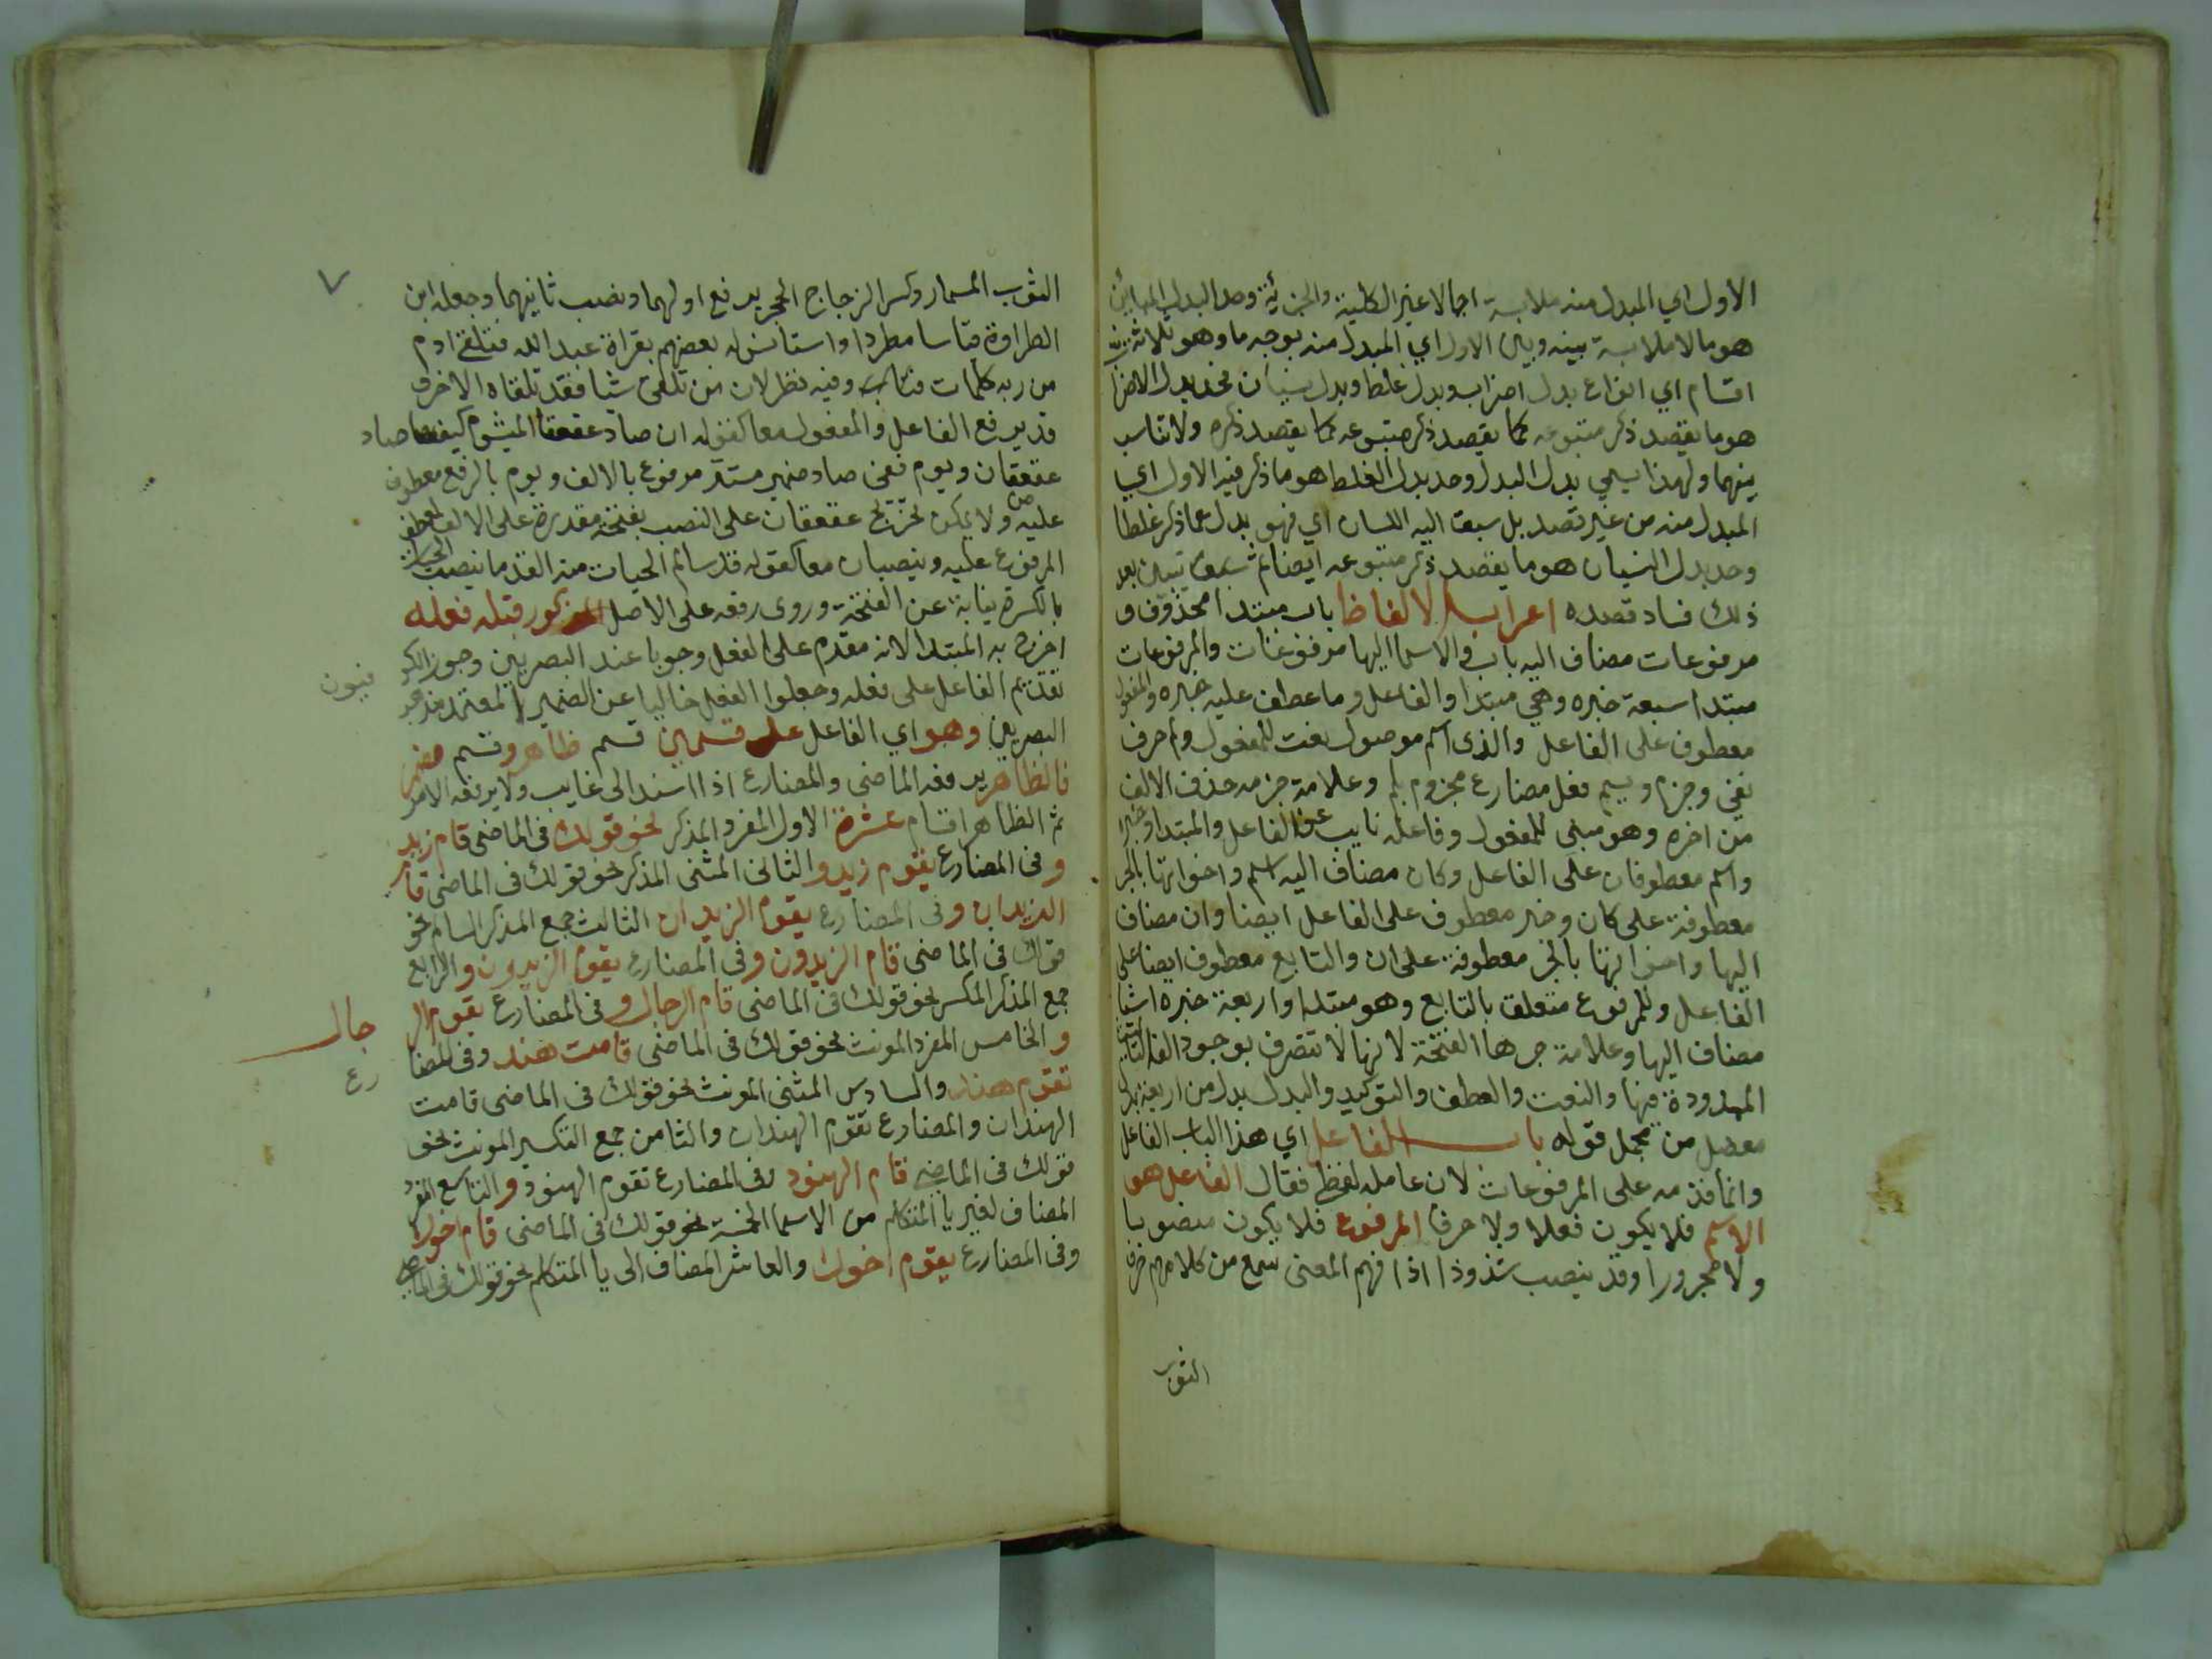 الاول اي المبدل منه ملابسة اجمالا غير الكلية والجزئية وحد البدل المباين
هو ما لا ملابسة بينه وبين الاول اي المبدل منه بوجه ما وهو ثلاثة
اقسام اي انواع بدل اضراب وبدل غلط وبدل نسيان فحد بدل الاضراب
هو ما يقصد ذكر متبوعه كما يقصد ذكر متبوعه كما يقصد ذكره ولا تناسب
بينهما ولهذا يسمي بدل البدل وحد بدل الغلط هو ما ذكر فيه الاول اي
المبدل منه من غير قصد بل سبق اليه اللسان اي فهو بدل عما ذكر غلطا
وحد بدل النسيان هو ما يقصد ذكر متبوعه ايضا ثم تبين بعد
ذلك فساد قصده اعراب الالفاظ باب مبتدا محذوف و
مرفوعات مضاف اليه باب والاسما اليها مرفوعات والمرفوعات
مبتدا سبعة خبره وهي مبتدا والفاعل وما عطف عليه خبره والمفعول
معطوف على الفاعل والذي اسم موصول نعت للمفعول ولم حرف
نفي وجزم ويسم فعل مضارع مجزوم بلم وعلامة جزمه حذف الالف
من اخره وهو مبني للمفعول وفاعله نايب عن الفاعل والمبتدا وخبره
واسم معطوفان على الفاعل وكان مضاف اليه اسم واخواتها بالجر
معطوفة على كان وخبر معطوف على الفاعل ايضا وان مضاف
اليها واخواتها بالجر معطوفة على ان والتابع معطوف ايضا على
الفاعل وللمرفوع متعلق بالتابع وهو مبتدا واربعة خبره اشيا
مضاف اليها وعلامة جرها الفتحة لانها لا تتصرف بوجود الف التانيث
الممدودة فيها والنعت والعطف والتوكيد والبدل بدل من اربعة بدل
مفصل من مجمل قوله باب الفاعل اي هذا الباب الفاعل
وانما قدمه على المرفوعات لان عامله لفظي فقال الفاعل هو
الاسم فلا يكون فعلا ولا حرفا المرفوع فلا يكون منصوبا
ولا مجرورا وقد ينصب شذوذا اذا فهم المعنى سمع من كلامهم خرق
الثوب
٧
الثوب المسمار وكسر الزجاج الحجر برفع اولهما ونصب ثانيهما وجعله ابن
الطراوة قياسا مطردا واستانس له بعضهم بقراة عبد الله فتلقى ادم
من ربه كلمات فتاب وفيه نظر لان من تلقى شيا فقد تلقاه الاخر و
قد يرفع الفاعل والمفعول معا كقوله ان من صاد عقعقا لمشوم كيف من صاد
عقعقان وبوم ففي صاد ضمير مستتر مرفوع بالالف وبوم بالرفع معطوف
عليه ولا يمكن تخريج عقعقان على النصب بفتحة مقدرة على الالف لعطف
المرفوع عليه وينصبان معا كقوله قد سالم الحيات منه القدما بنصب الحيات
بالكسرة نيابة عن الفتحة وروى رفعه على الاصل المذكور قبله فعله
اخرج به المبتدا لانه مقدم على الفعل وجوبا عند البصريين وجوز الكو
فيون
تقديم الفاعل على فعله وجعلوا الفعل خاليا عن الضمير المعتمد مذهب
البصريين وهو اي الفاعل على قسمين قسم ظاهر وقسم مضمر
فالظاهر يرفعه الماضي والمضارع اذا اسند الى غايب ولا يرفعه الامر
ثم الظاهر اقسام عشرة الاول المفرد المذكر نحو قولك في الماضي قام زيد
وفي المضارع يقوم زيد والثاني المثنى المذكر نحو قولك في الماضي قام
الزيدان وفي المضارع يقوم الزيدان الثالث جمع المذكر السالم نحو
قولك في الماضي قام الزيدون وفي المضارع يقوم الزيدون والرابع
جمع المذكر المكسر نحو قولك في الماضي قام الرجال وفي المضارع يقوم الر
جال
والخامس المفرد المونث نحو قولك في الماضي قامت هند وفي المضا
رع
تقوم هند والسادس المثنى المونث نحو قولك في الماضي قامت
الهندان والمضارع تقوم الهندان والثامن جمع التكسير المونث نحو
قولك في الماضي قام الهنود وفي المضارع تقوم الهنود والتاسع المفرد
المضاف لغير يا المتكلم من الاسما الخمسة نحو قولك في الماضي قام اخوك
وفي المضارع يقوم اخوك والعاشر المضاف الى يا المتكلم نحو قولك في الماضي